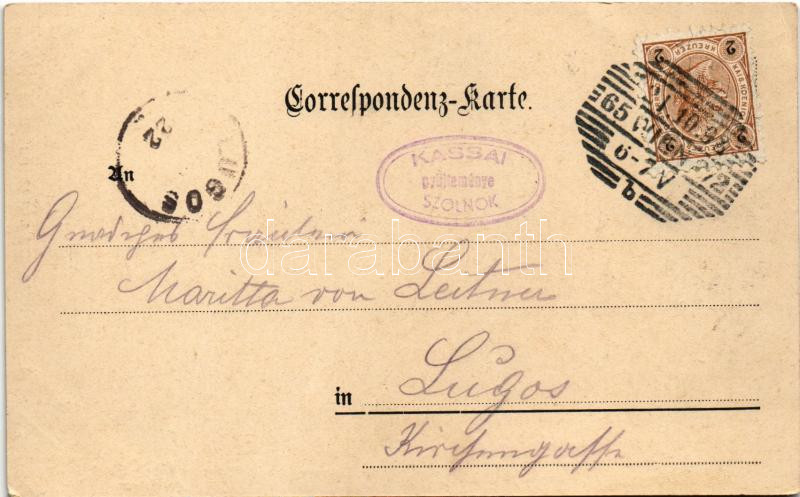 Correspondenz-Karte.
2 KREUZER 2
65 WIEN 7/2
1.10.98
6-7V
b
KASSAI
gyűjteménye
SZOLNOK
LUGOS
22
An
Gnädiges Fräulein
Maritta von Leitner
darabanth
in Lugos
Kirchengasse